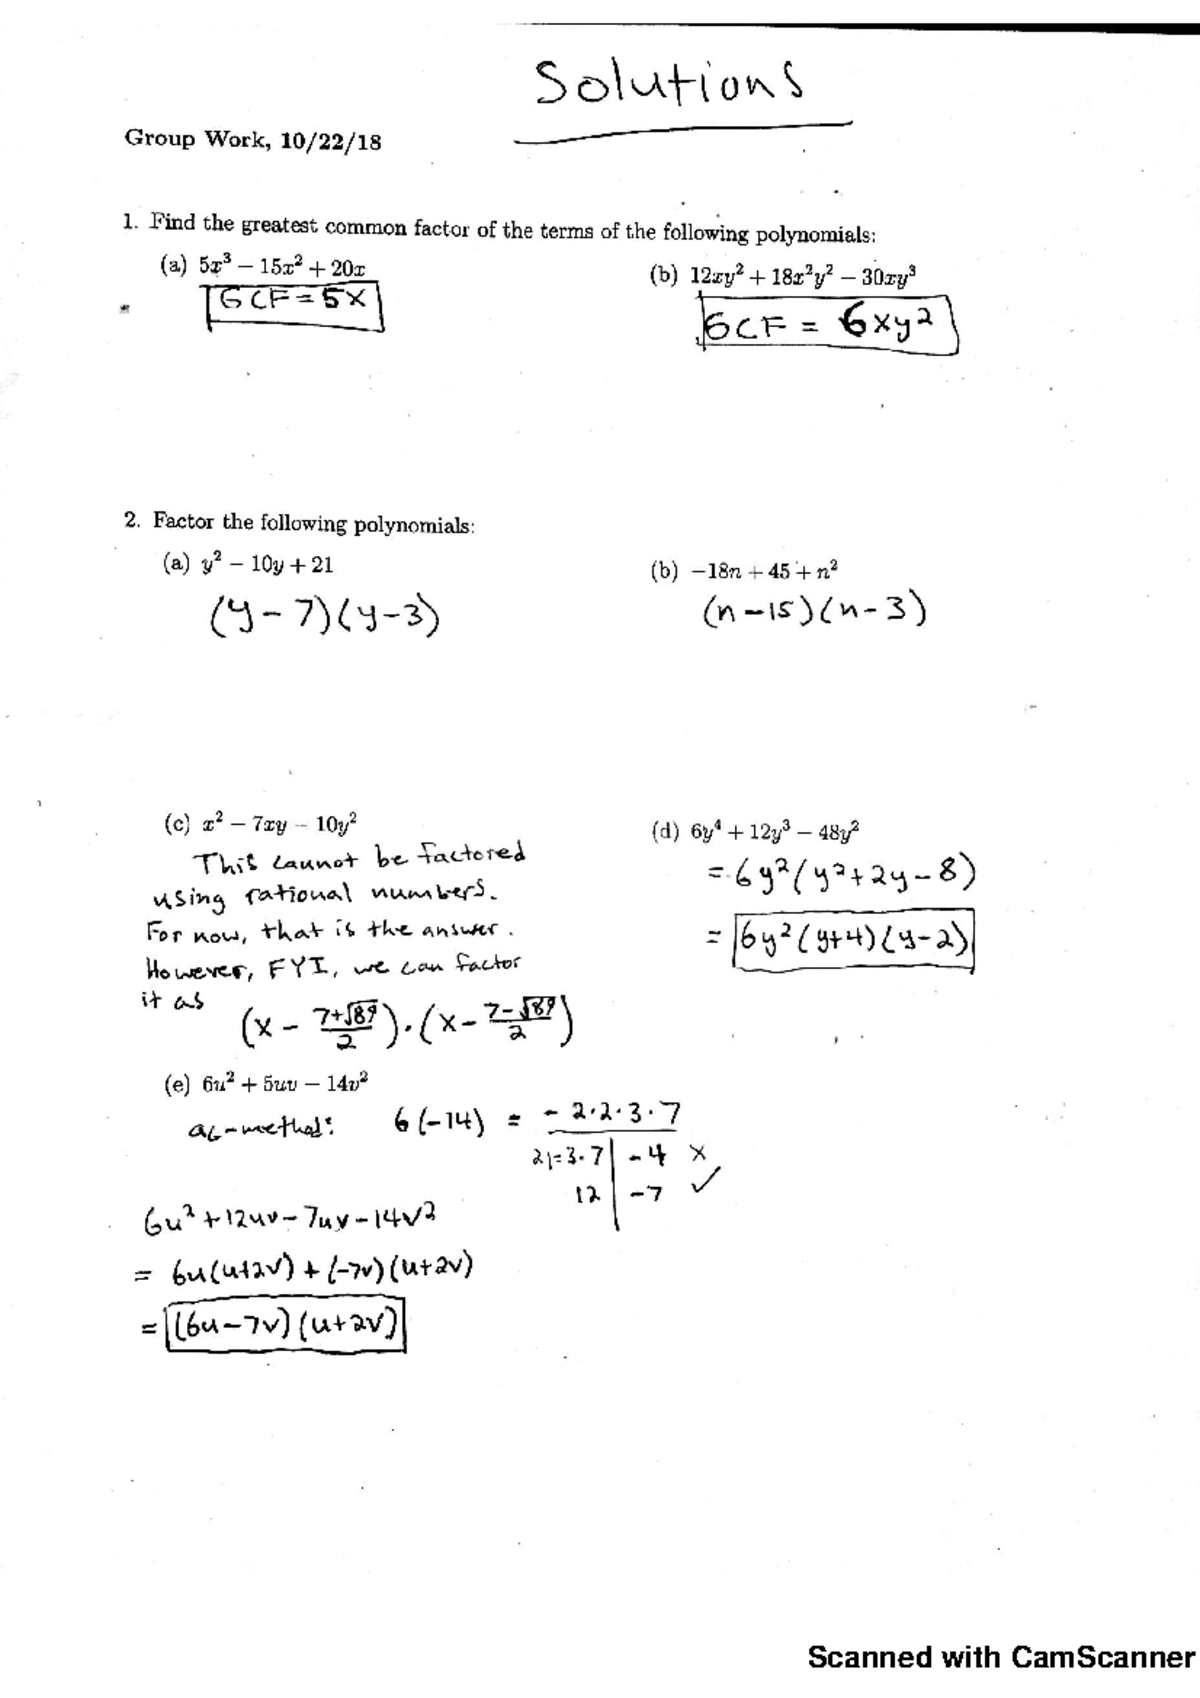 Solutions
Group Work, 10/22/18
1. Find the greatest common factor of the terms of the following polynomials:
(a) 5x³ − 15x² + 20x
(b) 12xy² + 18x²y² − 30xy³
GCF = 5x
GCF = 6xy²
2. Factor the following polynomials:
(a) y² − 10y + 21
(b) −18n + 45 + n²
(y − 7)(y − 3)
(n − 15)(n − 3)
(c) x² − 7xy − 10y²
(d) 6y⁴ + 12y³ − 48y²
This cannot be factored
using rational numbers.
For now, that is the answer.
However, FYI, we can factor
it as
(x − (7+√89)/2)·(x − (7−√89)/2)
= 6y²(y² + 2y − 8)
= 6y²(y+4)(y−2)
(e) 6u² + 5uv − 14v²
ac-method: 6(−14) = −2·2·3·7
21=3·7 | −4 x
12 | −7 ✓
6u² + 12uv − 7uv − 14v²
= 6u(u+2v) + (−7v)(u+2v)
= (6u−7v)(u+2v)
Scanned with CamScanner